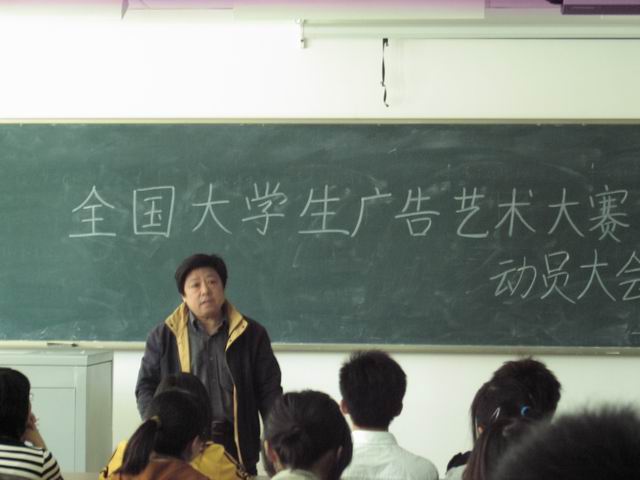 全国大学生广告艺术大赛
动员大会